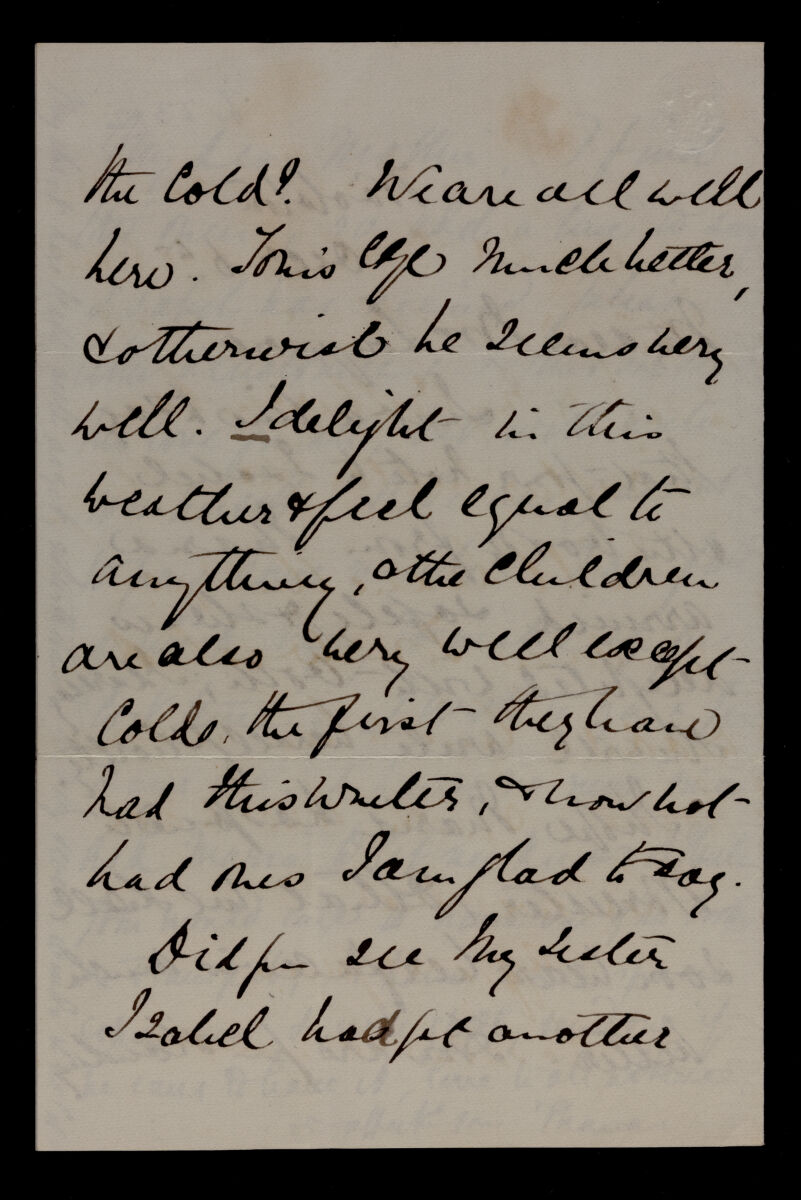 the cold? We are all well
here. Tom's eye much better,
& otherwise he seems very
well. I delight in this
weather & feel equal to
anything, & the children
are also very well except
colds, the first they have
had this winter, & now not
bad ones I am glad to say.
Did you see my sister
Isabel had got another